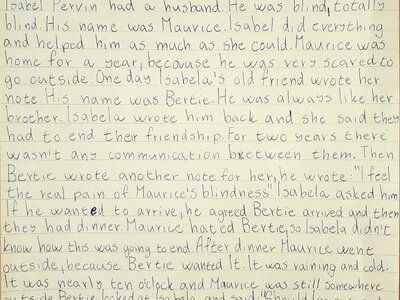 Isabel Pervin had a husband. He was blind, totally
blind. His name was Maurice. Isabel did everything
and helped him as much as she could. Maurice was
home for a year, becouse he was very scared to
go outside. One day Isabela's old friend wrote her
note. His name was Bertie. He was always like her
brother. Isabela wrote him back and she said they
had to end their friendship. For two years there
wasn't any communication between them. Then
Bertie wrote another note for her, he wrote: "I feel
the real pain of Maurice's blindness". Isabela asked him
If he wanted to arrive, he agreed. Bertie arrived and then
they had dinner. Maurice hated Bertie, so Isabela didn't
know how this was going to end. After dinner Maurice went
outside, because Bertie wanted it. It was raining and cold.
It was nearly ten o'clock and Maurice was still somewhere
outside. Bertie looked at Isabela and said "Should